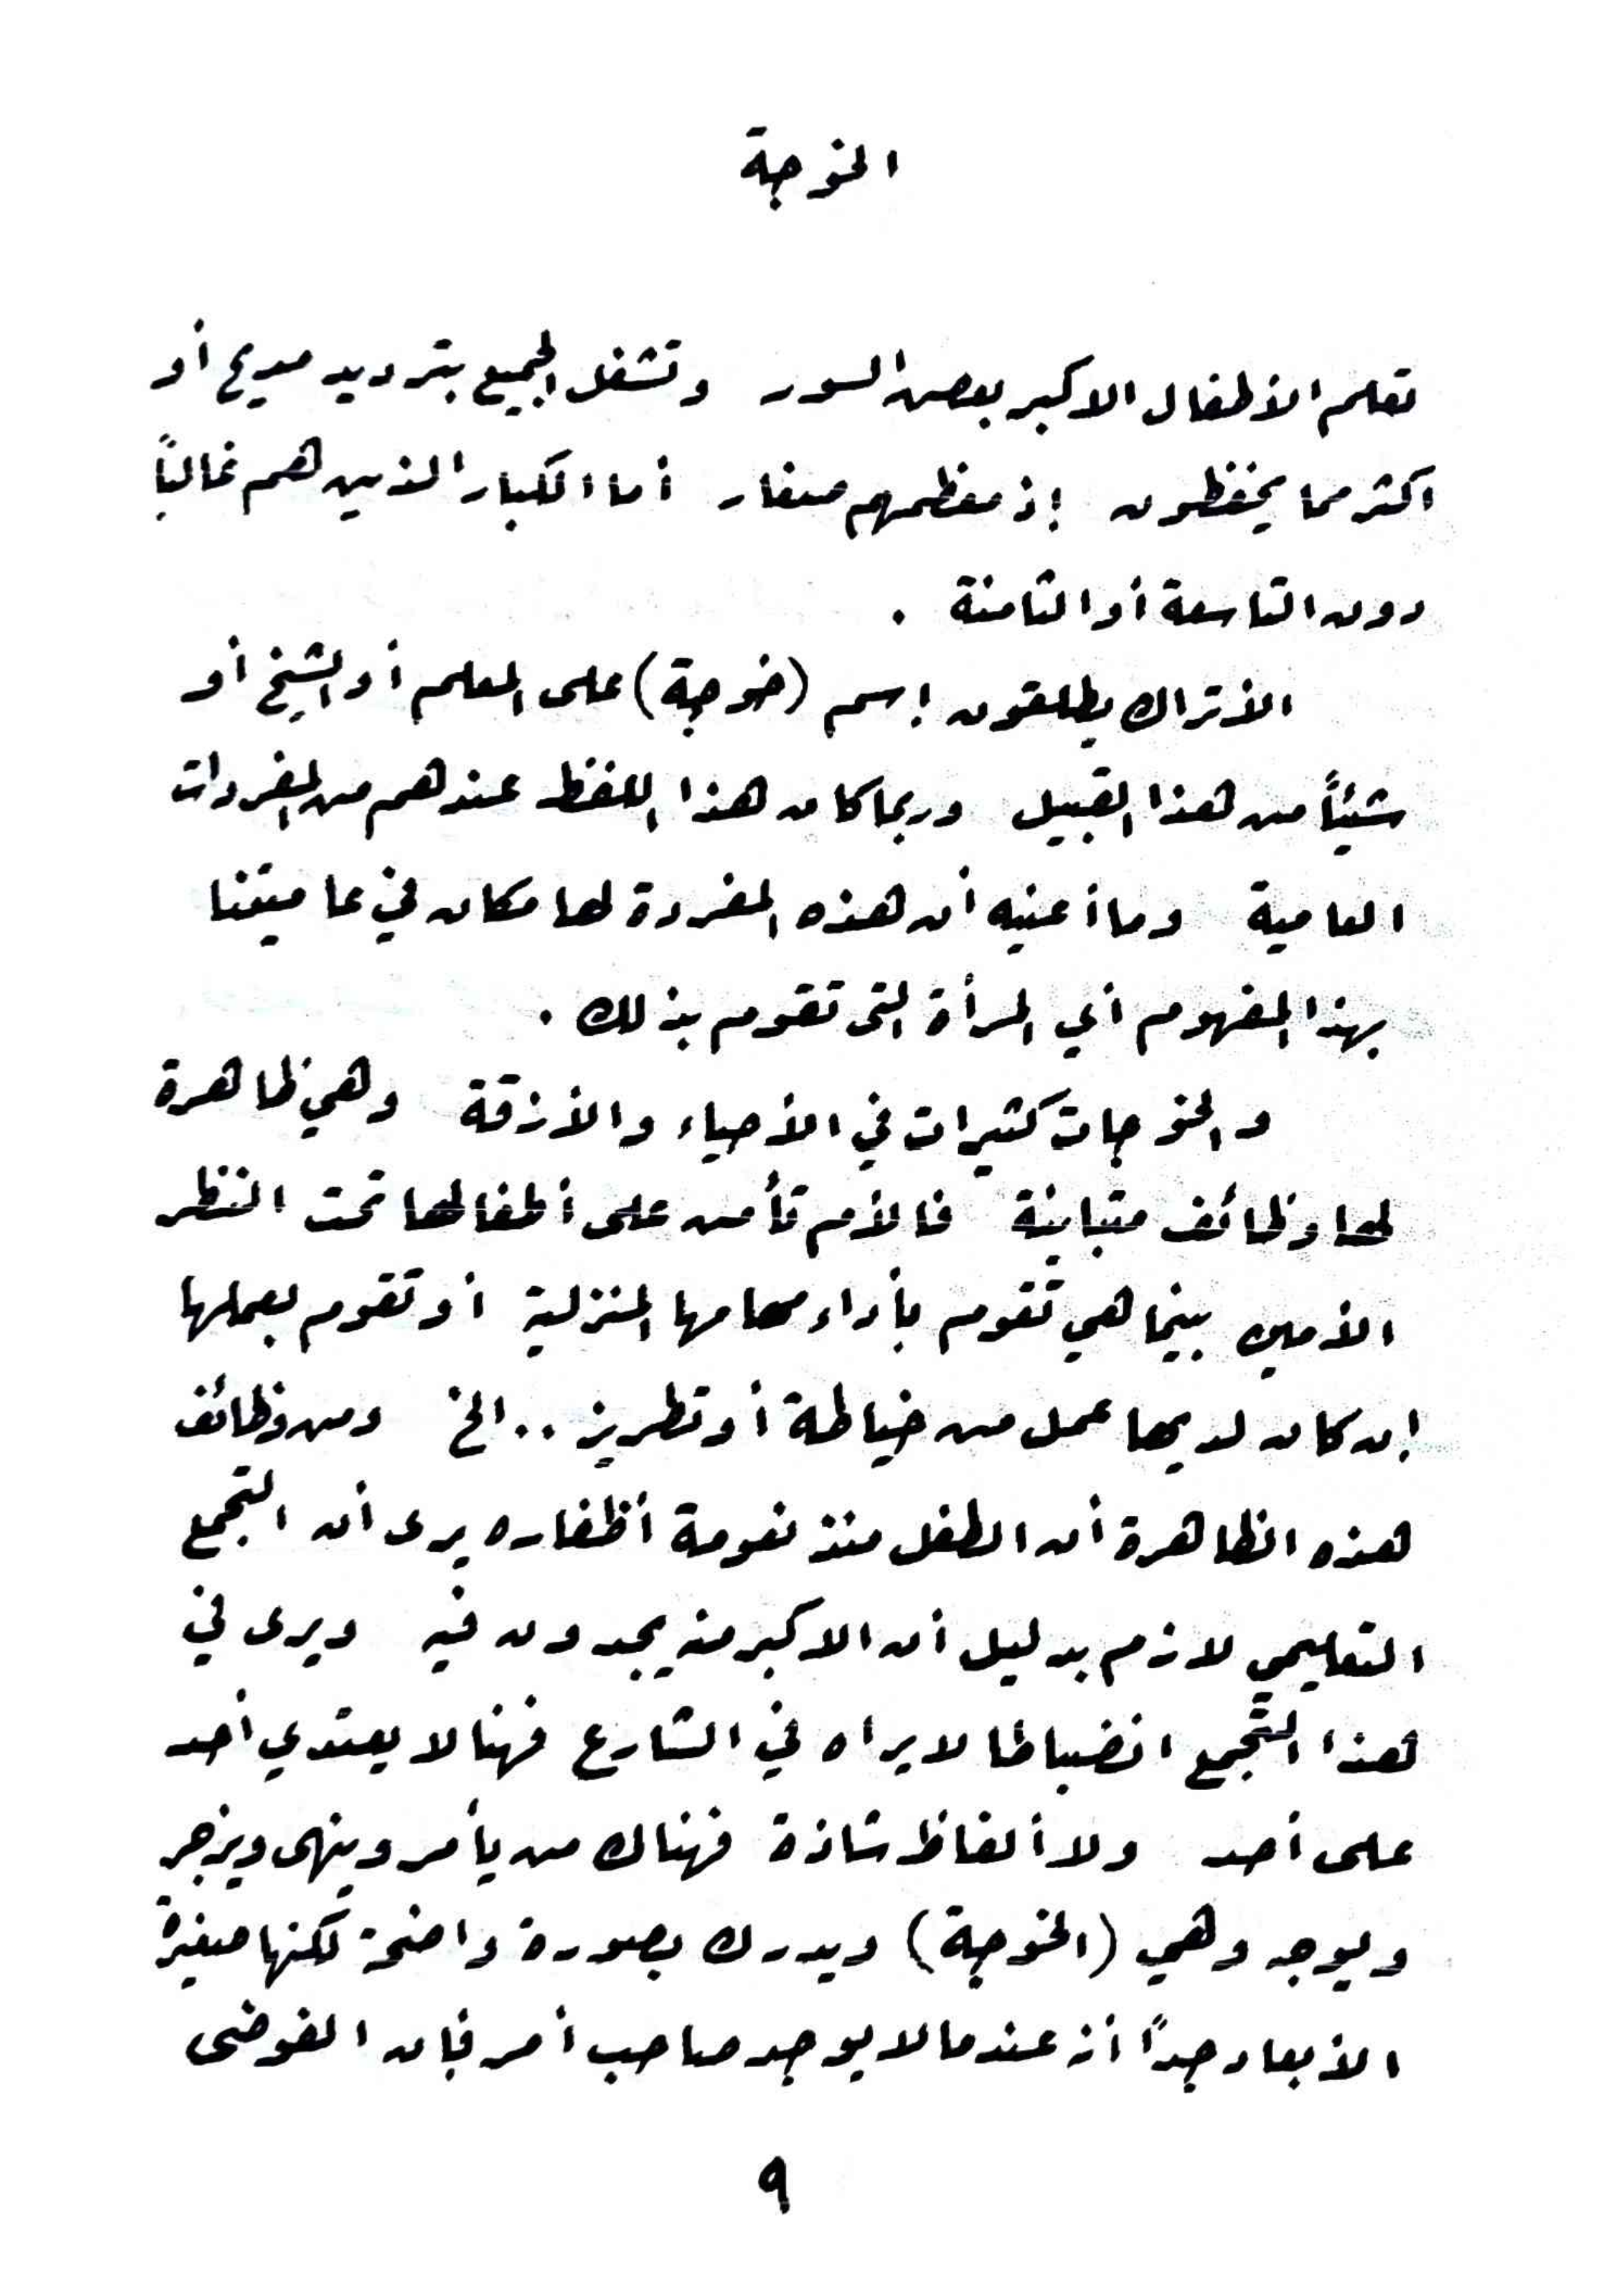 الخوجة
تعلم الأطفال الاكبر بعض السور وتشغل الجميع بترديد مديح أو
اكثر مما يحفظون إذ معظمهم صغار أما الكبار الذين هم غالباً
دون التاسعة أو الثامنة .
الأتراك يطلقون إسم (خوجة) على المعلم أو الشيخ أو
شيئاً من هذا القبيل وربما كان هذا اللفظ عندهم من المفردات
العامية وما أعنيه أن هذه المفردة لها مكان في عاميتنا
بهذا المفهوم أي المرأة التى تقوم بذلك .
والخوجات كثيرات في الأحياء والأزقة وهي ظاهرة
لها وظائف متباينة فالأم تأمن على أطفالها تحت النظر
الأمين بينما هي تقوم بأداء مهامها المنزلية أو تقوم بعملها
إن كان لديها عمل من خياطة أو تطريز .. الخ ومن وظائف
هذه الظاهرة أن الطفل منذ نعومة أظفاره يرى أن التجمع
التعليمي لازم بدليل أن الاكبر منه يجدون فيه ويرى في
هذا التجمع انضباطا لا يراه في الشارع فهنا لا يعتدي أحد
على أحد ولا ألفاظ شاذة فهناك من يأمر وينهى ويزجر
ويوجه وهي (الخوجة) ويدرك بصورة واضحة لكنها صغيرة
الأبعاد جداً أنه عندما لا يوجد صاحب أمر فإن الفوضى
٩